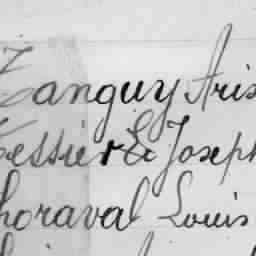 Tanguy Aris
Tessier & Joseph
horaval Louis